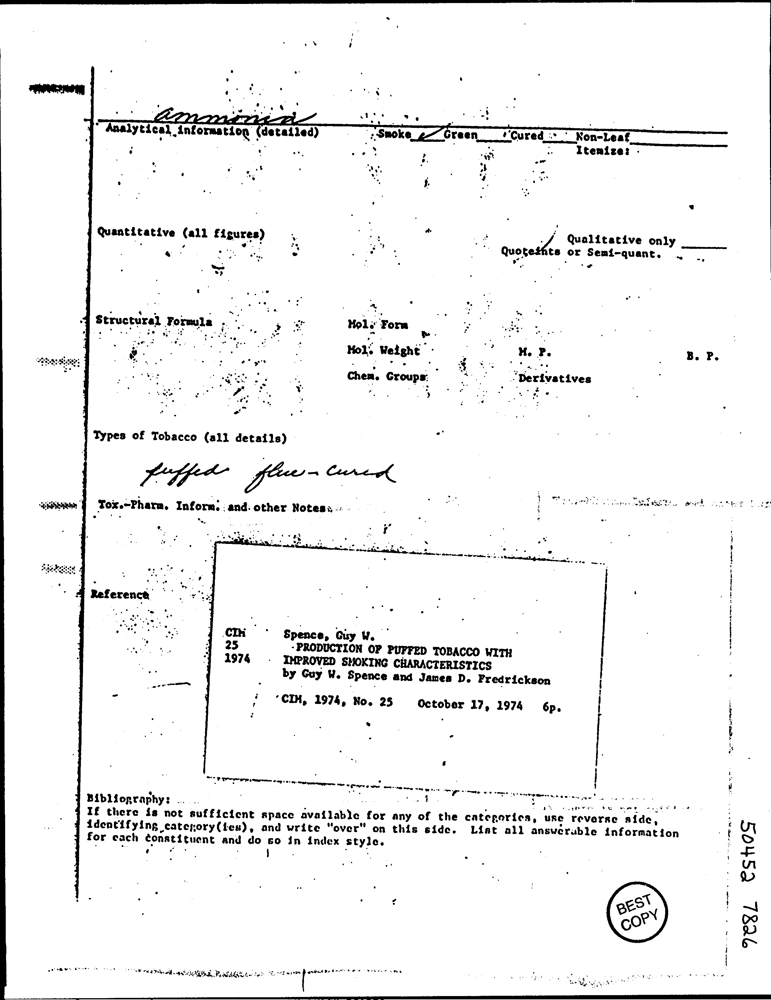 ammonia
Analytical information (detailed) Smoke ✓ Green ___ Cured ___ Non-Leaf ___
Itemize:
Quantitative (all figures)
Qualitative only ___
Quoteints or Semi-quant.
Structural Formula Mol. Form
Mol. Weight M. P. B. P.
Chem. Groups Derivatives
Types of Tobacco (all details)
puffed flue-cured
Tox.-Pharm. Inform. and other Notes
Reference
CIM Spence, Guy W.
25 PRODUCTION OF PUFFED TOBACCO WITH
1974 IMPROVED SMOKING CHARACTERISTICS
by Guy W. Spence and James D. Fredrickson
CIM, 1974, No. 25 October 17, 1974 6p.
Bibliography:
If there is not sufficient space available for any of the categories, use reverse side,
identifying category(ies), and write "over" on this side. List all answerable information
for each constituent and do so in index style.
BEST
COPY
50452 7826